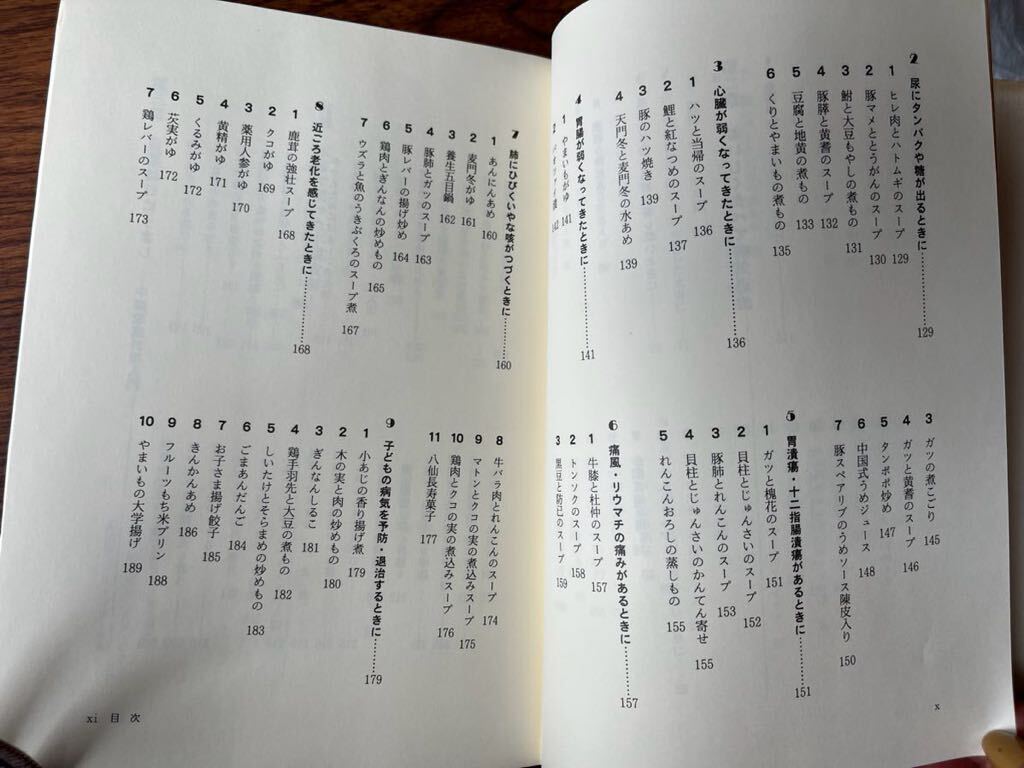 2 尿にタンパクや糖が出るときに………129
1 ヒレ肉とハトムギのスープ 129
2 豚マメととうがんのスープ 130
3 鮒と大豆もやしの煮もの 131
4 豚膵と黄耆のスープ 132
5 豆腐と地黄の煮もの 133
6 くりとやまいもの煮もの 135
3 心臓が弱くなってきたときに………136
1 ハツと当帰のスープ 136
2 鯉と紅なつめのスープ 137
3 豚のハツ焼き 139
4 天門冬と麦門冬の水あめ 139
4 胃腸が弱くなってきたときに………141
1 やまいもがゆ 141
2 142
3 ガツの煮こごり 145
4 ガツと黄耆のスープ 146
5 タンポポ炒め 147
6 中国式うめジュース 148
7 豚スペアリブのうめソース陳皮入り 150
5 胃潰瘍・十二指腸潰瘍があるときに………151
1 ガツと槐花のスープ 151
2 貝柱とじゅんさいのスープ 152
3 豚肺とれんこんのスープ 153
4 貝柱とじゅんさいのかんてん寄せ 155
5 れんこんおろしの蒸しもの 155
6 痛風・リウマチの痛みがあるときに………157
1 牛膝と杜仲のスープ 157
2 トンソクのスープ 158
3 黒豆と防已のスープ 159
x
7 肺にひびくいやな咳がつづくときに………160
1 あんにんあめ 160
2 麦門冬がゆ 161
3 養生五目鍋 162
4 豚肺とガツのスープ 163
5 豚レバーの揚げ炒め 164
6 鶏肉とぎんなんの炒めもの 165
7 ウズラと魚のうきぶくろのスープ煮 167
8 近ごろ老化を感じてきたときに………168
1 鹿茸の強壮スープ 168
2 クコがゆ 169
3 薬用人参がゆ 170
4 黄精がゆ 171
5 くるみがゆ 172
6 芡実がゆ 172
7 鶏レバーのスープ 173
8 牛バラ肉とれんこんのスープ 174
9 マトンとクコの煮込みスープ 175
10 鶏肉とクコの実の煮込みスープ 176
11 八仙長寿菓子 177
9 子どもの病気を予防・退治するときに………179
1 小あじの香り揚げ煮 179
2 木の実と肉の炒めもの 180
3 ぎんなんしるこ 181
4 鶏手羽先と大豆の煮もの 182
5 しいたけとそらまめの炒めもの 183
6 ごまあんだんご 184
7 お子さま揚げ餃子 185
8 きんかんあめ 186
9 フルーツもち米プリン 188
10 やまいもの大学揚げ 189
xi 目次